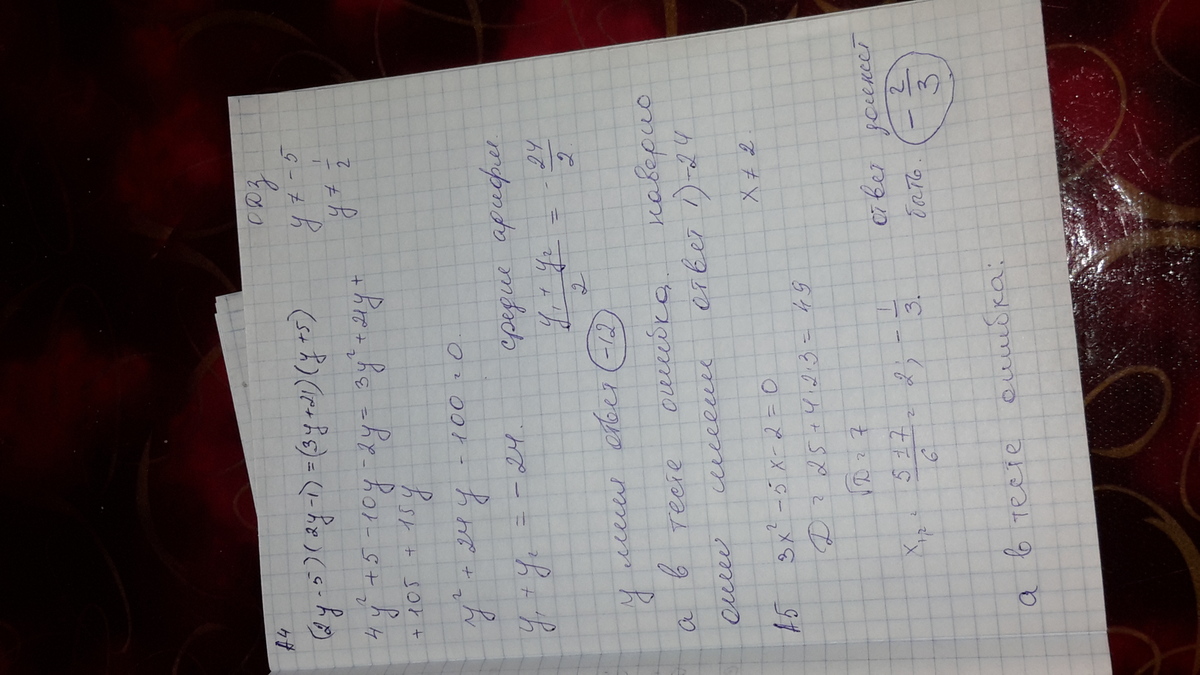 А4
ОДЗ
(2y-5)(2y-1)=(3y+21)(y+5)
y ≠ -5
4y²+5-10y-2y=3y²+21y+
y ≠ 1/2
+105+15y
y²+24y-100=0.
y₁+y₂=-24.
средние арифм.
(y₁+y₂)/2 = -24/2
У меня ответ (-12)
а в тесте ошибка, наверно
они имели ответ 1) -24
А5 3x²-5x-2=0
x≠2.
D=25+4·2·3=49
√D=7
x₁,₂=(5±7)/6=2; -1/3.
ответ должен
быть. -2/3
а в тесте ошибка: